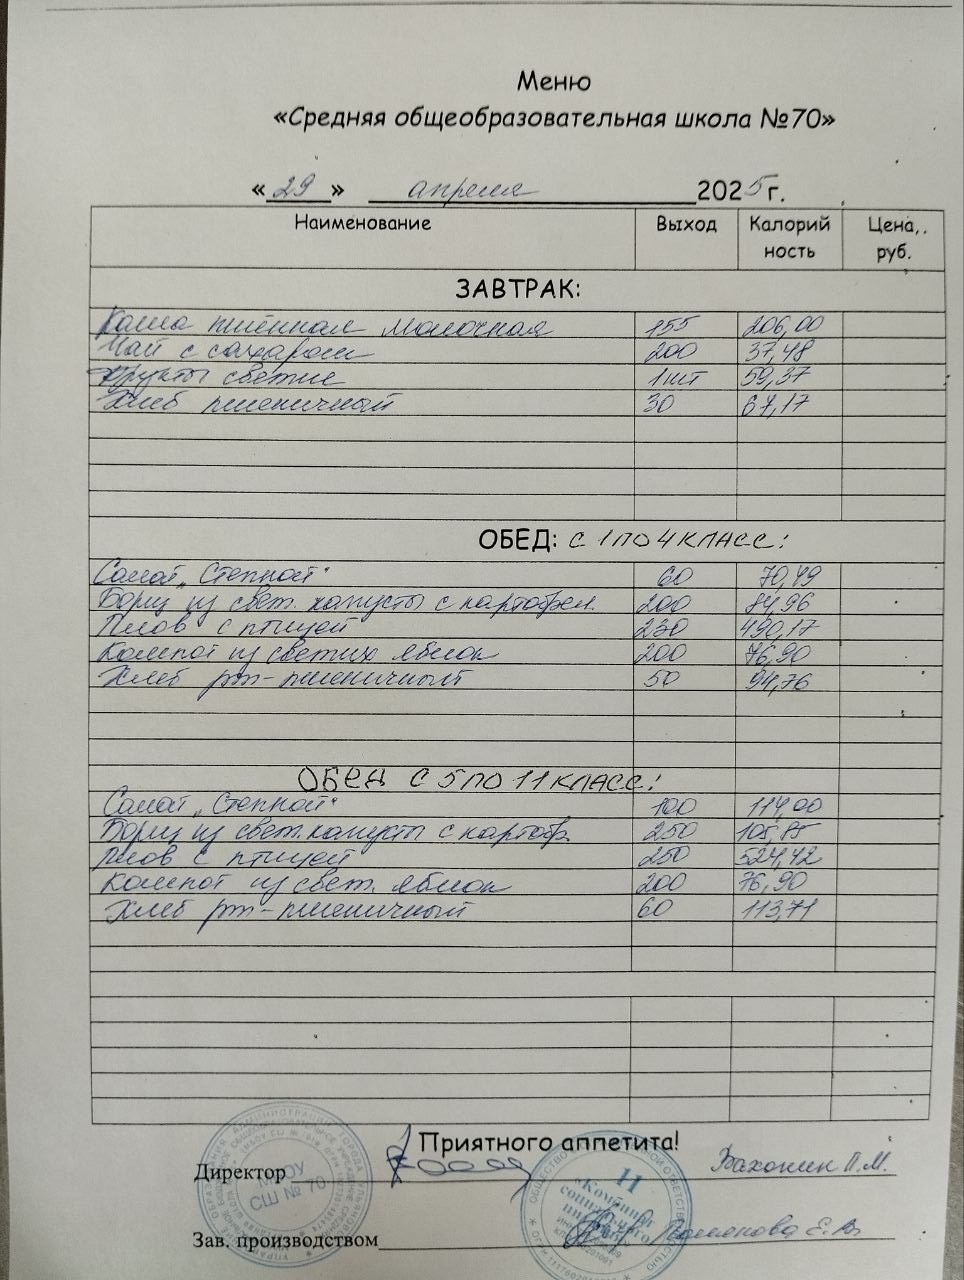 Меню
«Средняя общеобразовательная школа №70»
«29» апреля 2025г.
Наименование Выход Калорийность Цена, руб.
ЗАВТРАК:
Каша пшённая молочная 155 206,00
Чай с сахаром 200 37,48
Фрукты свежие 1шт 59,37
Хлеб пшеничный 30 67,17
ОБЕД: С 1 ПО 4 КЛАСС:
Салат „Степной" 60 70,49
Борщ из свеж. капусты с картофел. 200 84,96
Плов с птицей 230 490,17
Компот из свежих яблок 200 76,90
Хлеб рж-пшеничный 50 94,76
ОБЕД С 5 ПО 11 КЛАСС:
Салат „Степной" 100 114,00
Борщ из свеж. капусты с картоф. 250 105,85
Плов с птицей 250 524,42
Компот из свеж. яблок 200 76,90
Хлеб рж-пшеничный 60 113,71
Приятного аппетита!
Директор
СШ № 70
11
«Комбинат социального питания»
Зав. производством Е.В.